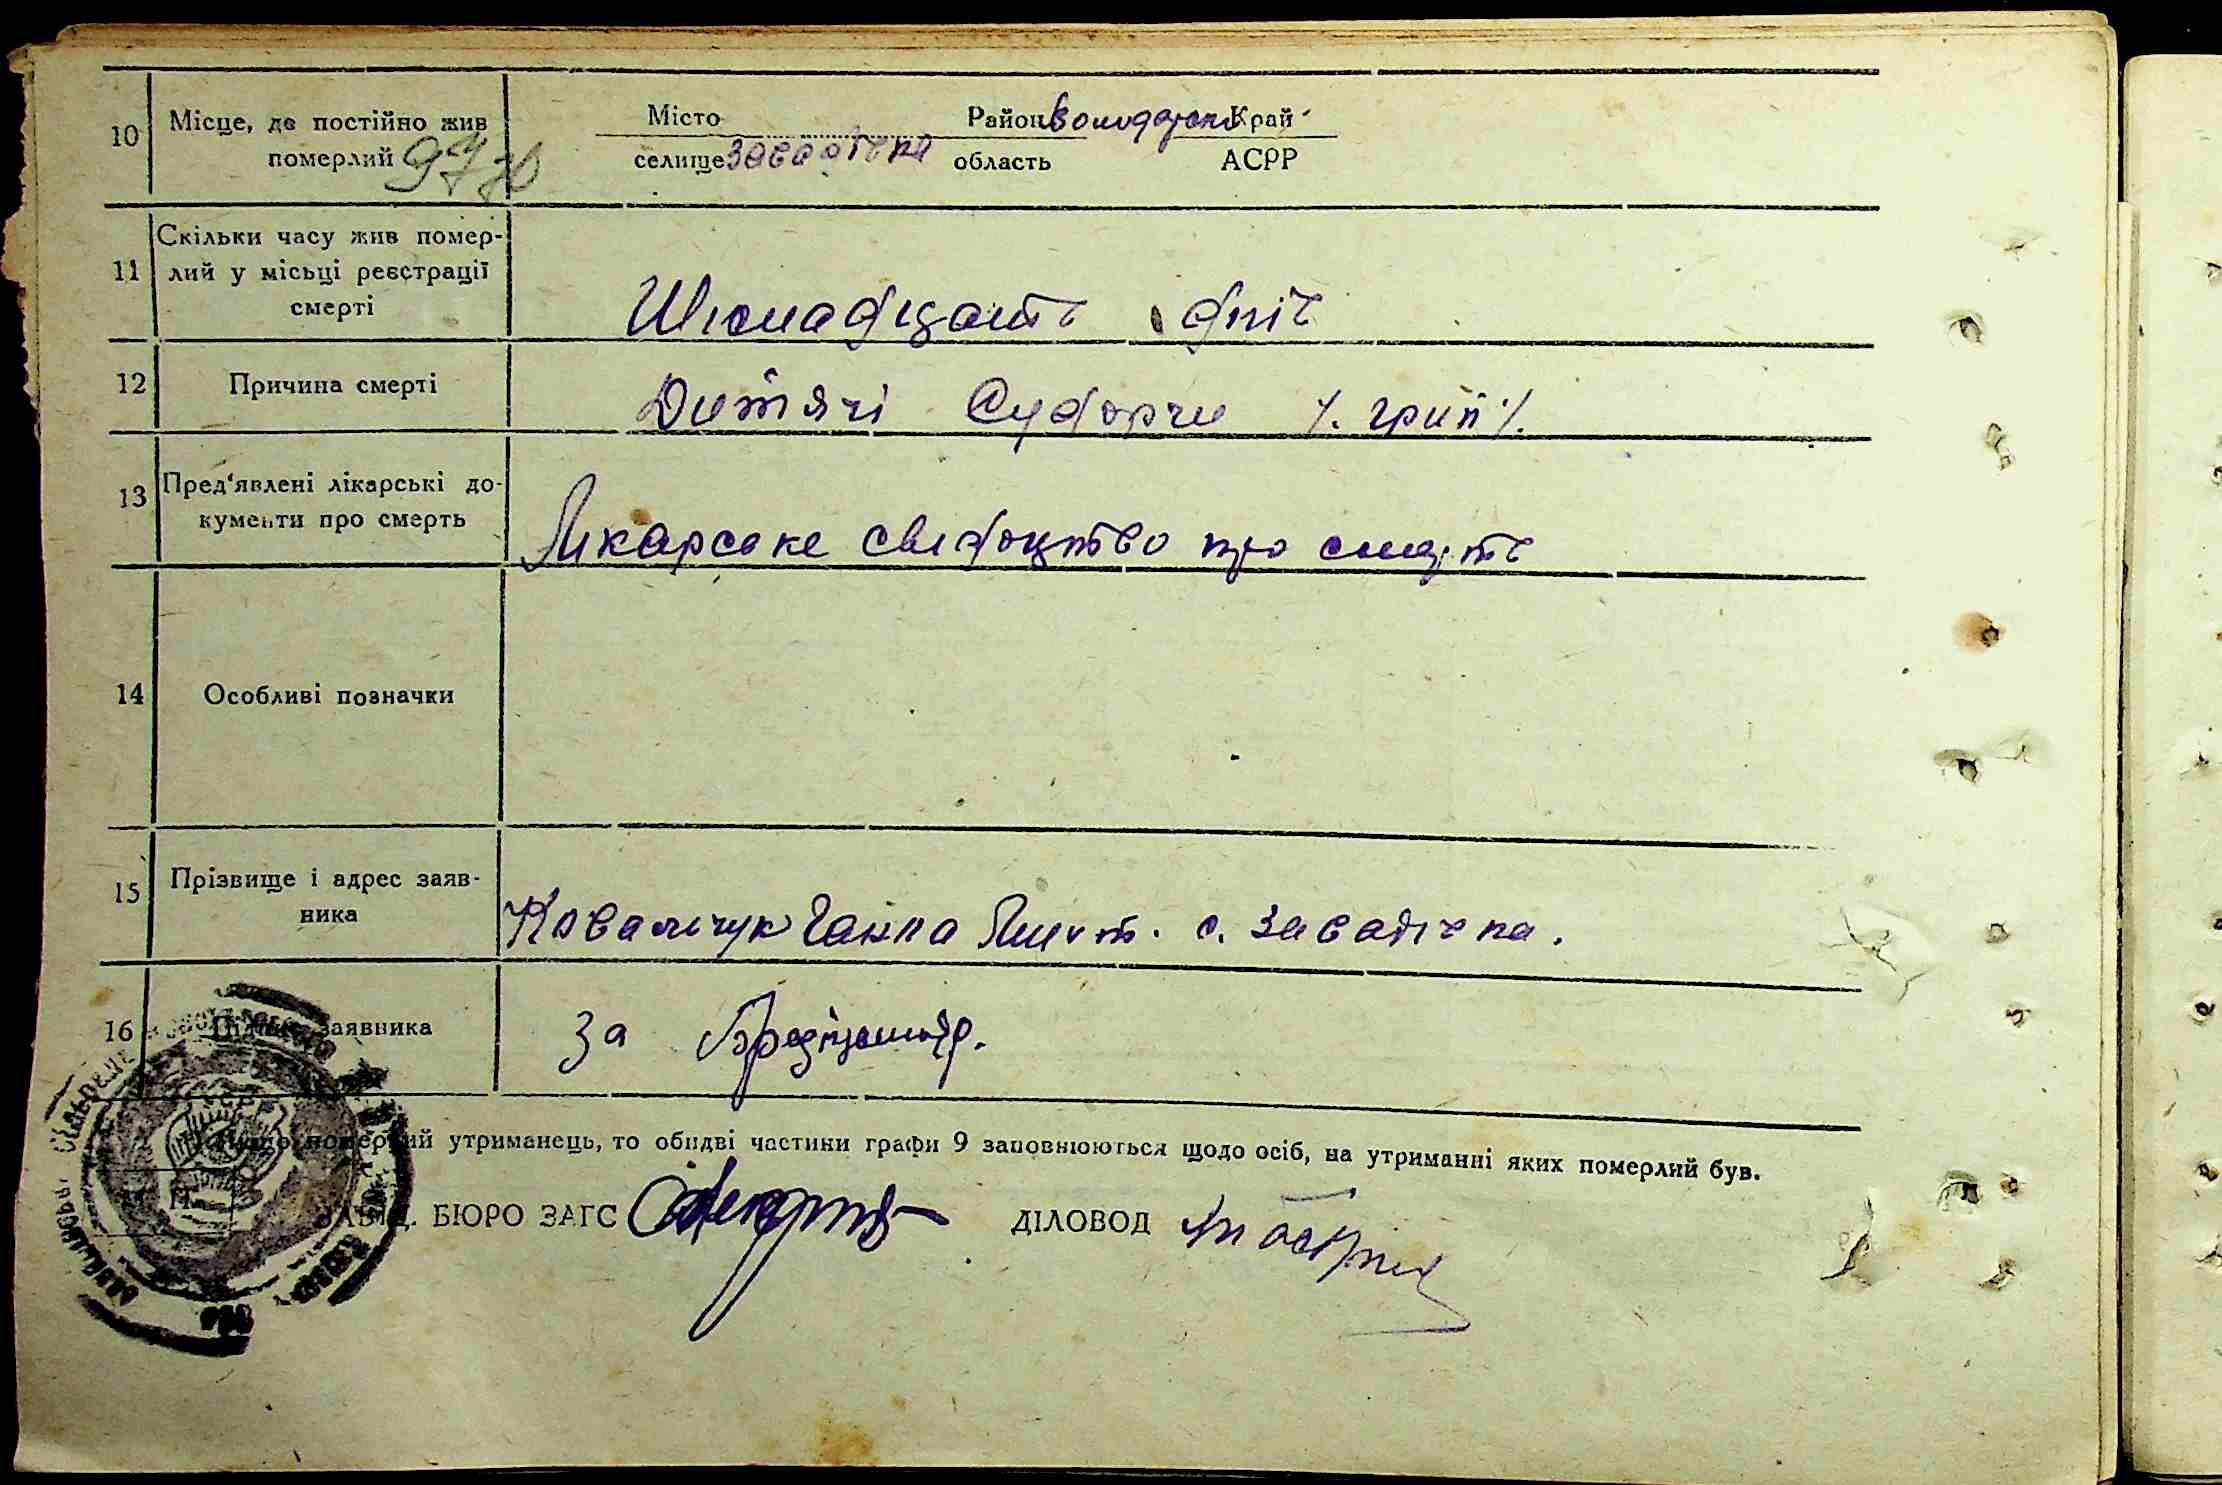 10 Місце, де постійно жив Місто Район Володарськ Край
померлий селище Завадівка область АСРР
Скільки часу жив помер-
11 лий у місьці реєстрації
смерті
Шіснадцять днів
12 Причина смерті Дитячі Судорги /. грип /.
13 Пред'явлені лікарські до-
кументи про смерть
Лікарське свідоцтво про смерть
14 Особливі позначки
15 Прізвище і адрес заяв-
ника
Ковальчук Ганна с. Завадівка.
16 Підпис заявника За
Якщо померлий утриманець, то обидві частини графи 9 заповнюються щодо осіб, на утриманні яких померлий був.
М. П.
ЗАВІД. БЮРО ЗАГС ДІЛОВОД